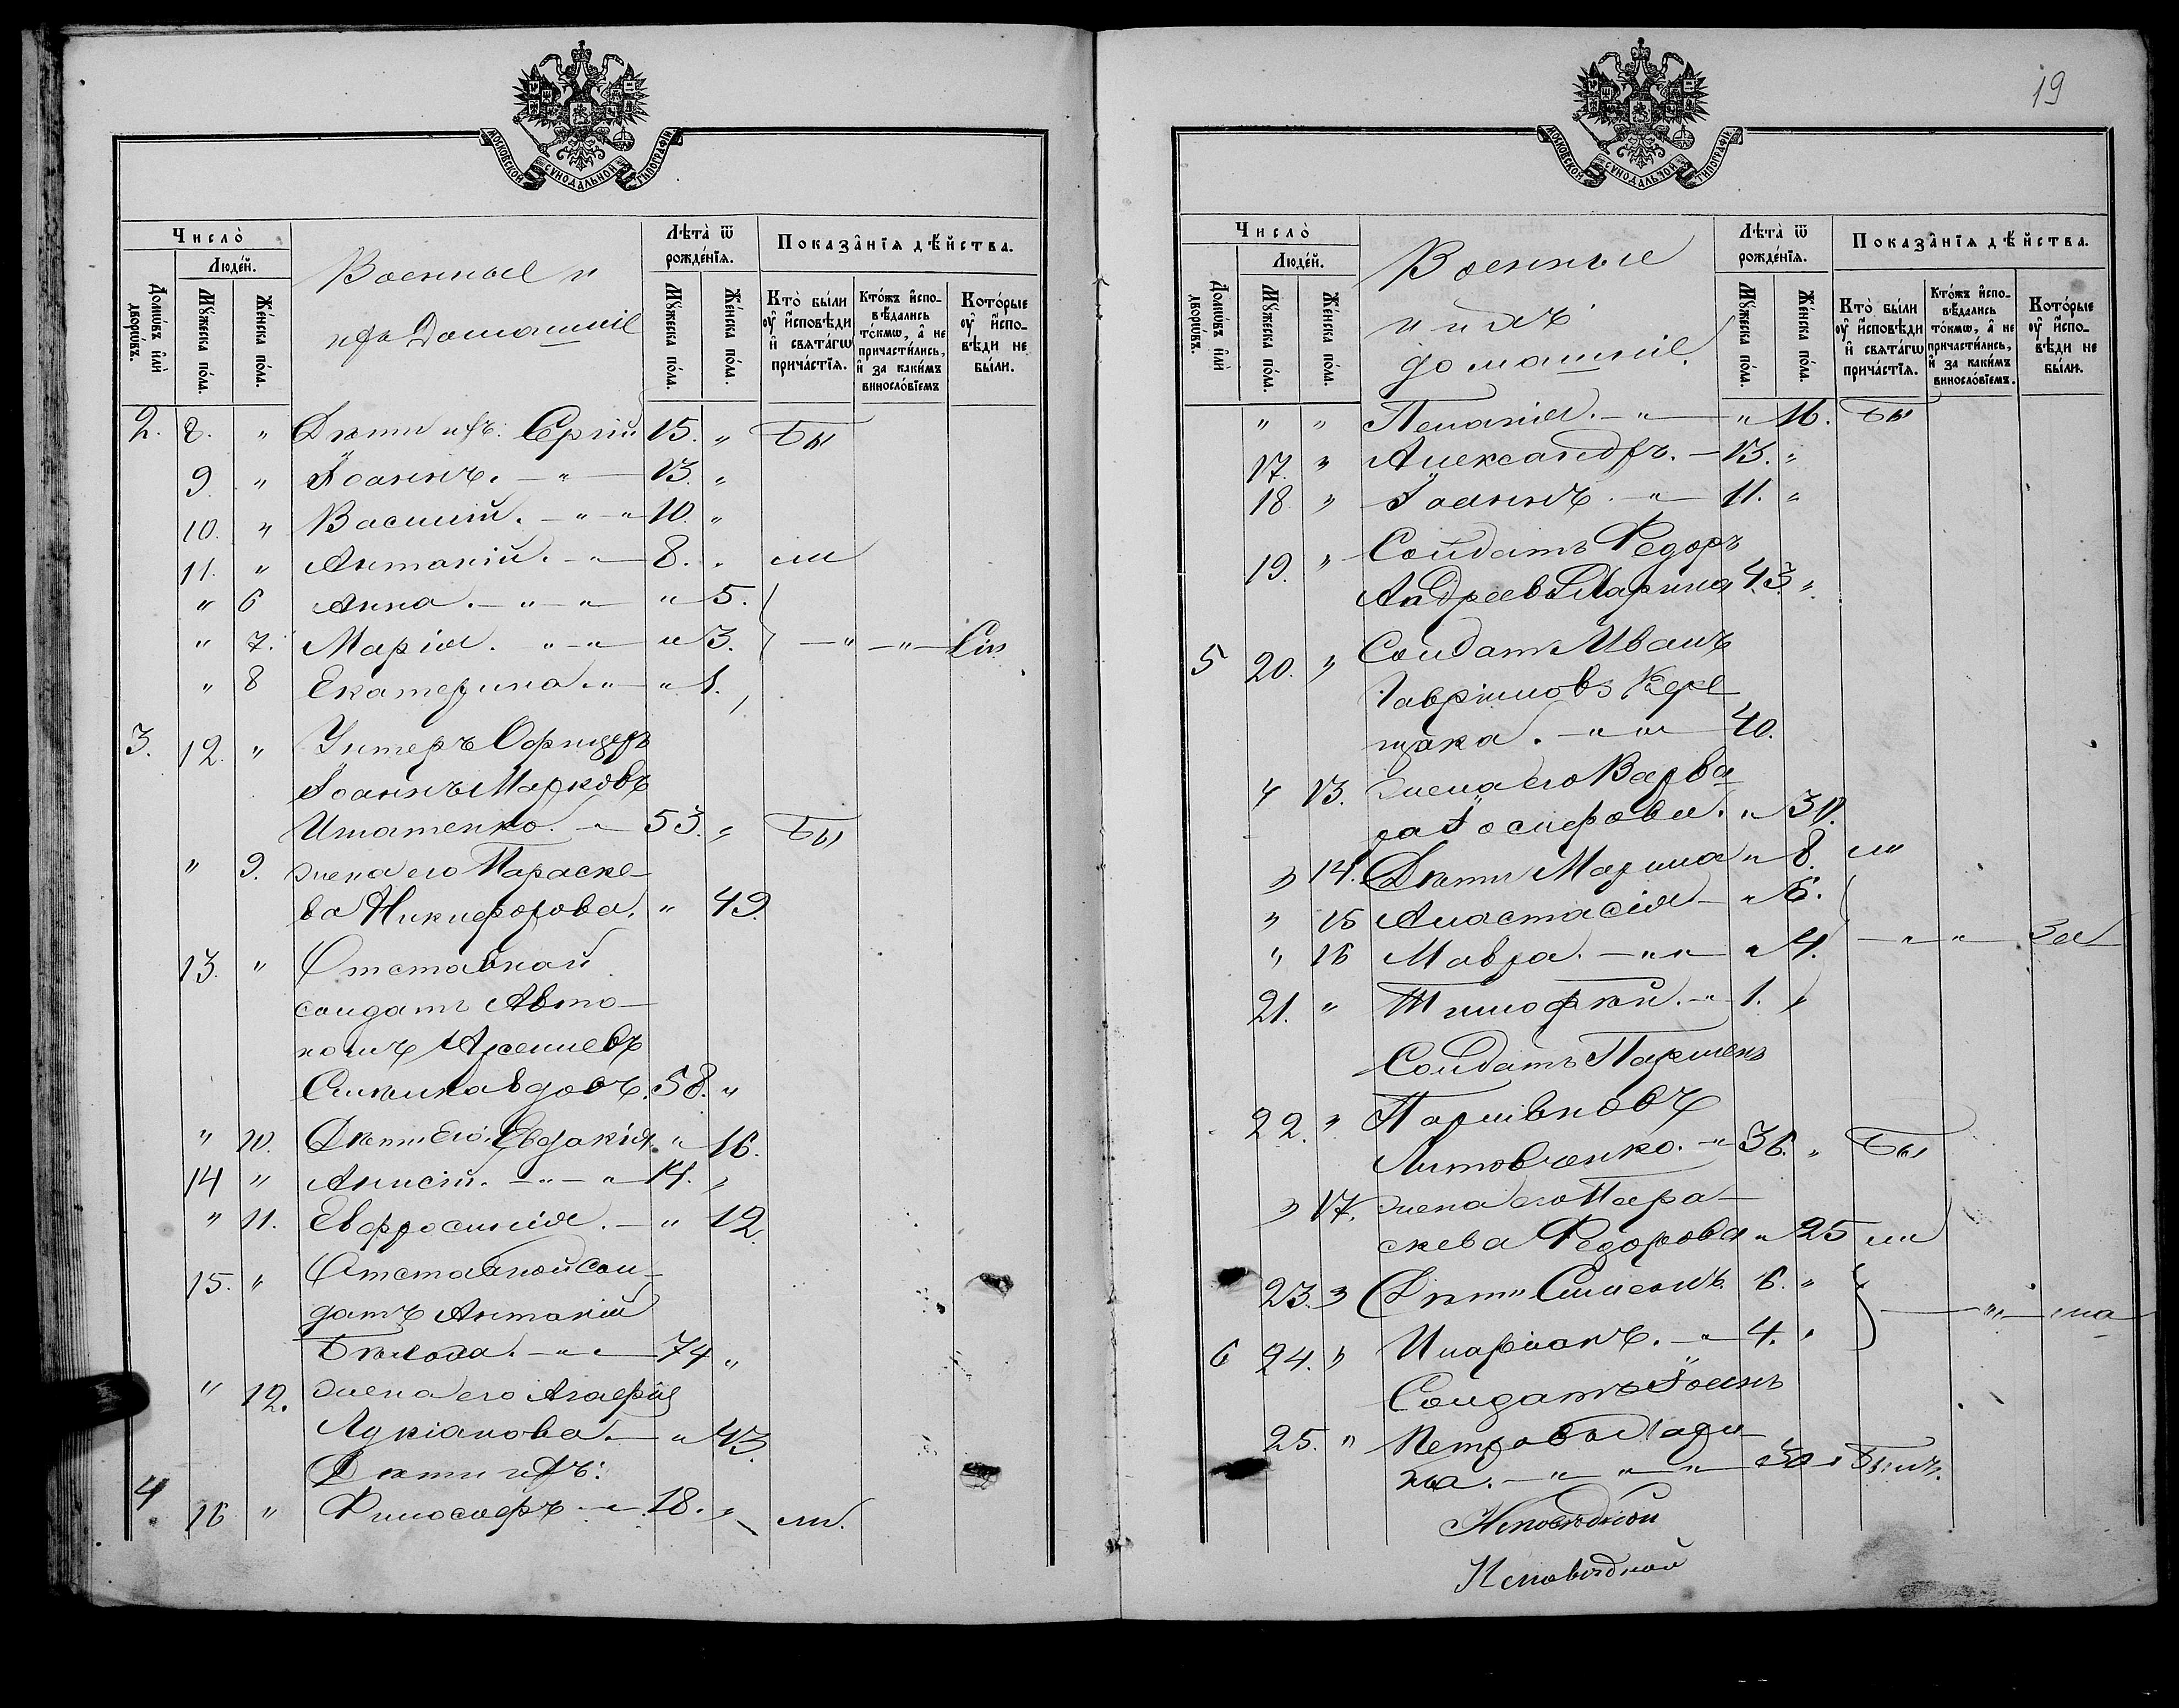 МОСКОВСКОЙ СУНОДАЛЬНОЙ ТИПОГРАФІИ
Число̀
Людéй.
Домѡ́въ и҆лѝ дворѡ́въ.
Мꙋ́жеска по́ла.
Же́нска по́ла.
Военные и
ихъ Домашніе
Лѣта̀ ѿ рождéнїѧ.
Мꙋ́жеска по́ла.
Же́нска по́ла.
Показа̑нїѧ дѣ́йства.
Кто̀ бы́ли ᲂу҆ и҆сповѣди и҆ свѧта́гѡ прича́стїѧ.
Кто́жъ и҆сповѣ́дались то́кмѡ, а҆ не причасти́лись, и҆ за каки́мъ винослóвїемъ
Котóрые ᲂу҆ и҆сповѣди не бы́ли.
2. 8. " Дѣти ихъ: Сергій 15. " Бы
9. " Іоаннъ. - " - 13. "
10. " Василій. - " - " 10. "
11. " Антоній. - " - 8. " ли
" 6 Анна. - " - " " 5.
" 7. Марія. " - " - " 3. - " - " -
" 8 Екатерина " - " 1.
3. 12. " Унтеръ Офицеръ
Іоаннъ Марковъ
Игнатенко. - " 53. " Бы
" 9. жена его Параске-
ва Никифорова. " 49.
13. " Отставной
солдатъ Авто-
номъ Арсеніевъ
вдовъ. 58. "
" 10. Дѣти Его: Евдокія " 16.
14 " Анисій. - " - " 14. "
" 11. Евфросинія. - " 12.
15. " Отставной сол-
датъ Антоній
Бѣлоха. - " - 74 "
" 12. жена его Агафія
Лукіанова - " 43.
Дѣти ихъ:
4 16 " Филосафъ - " - 18. " ли.
19
МОСКОВСКОЙ СУНОДАЛЬНОЙ ТИПОГРАФІИ
Число̀
Людéй.
Домѡ́въ и҆лѝ дворѡ́въ.
Мꙋ́жеска по́ла.
Же́нска по́ла.
Военные
и ихъ
домашніе.
Лѣта̀ ѿ рождéнїѧ.
Мꙋ́жеска по́ла.
Же́нска по́ла.
Показа̑нїѧ дѣ́йства.
Кто̀ бы́ли ᲂу҆ и҆сповѣди и҆ свѧта́гѡ прича́стїѧ.
Кто́жъ и҆сповѣ́дались то́кмѡ, а҆ не причасти́лись, и҆ за каки́мъ винослóвїемъ.
Котóрые ᲂу҆ и҆сповѣди не бы́ли.
" " Пелагія. - " - " 16. Бы
17. " Александръ. - 13. "
18. " Іоаннъ. - " - 11. "
19. " Солдатъ Федоръ
Андреевъ 43. "
5 20. " Солдатъ Иванъ
Гавріиловъ Кере
щака. - " " 40.
" 13. жена его Варва
ра Іосифова. " 30.
" 14. Дѣти Марина " 8. ли
" 15 Анастасія - " 6.
" 16 Мавра. - " " " 4. - " - " - За
21. " Тимофѣй. - " - 1. "
Солдатъ Парменъ
22. " Парменовъ
Литовченко. - " 36. " Бы
" 17. жена его Пара-
скева Федорова " 25 ли
23. " Дѣти Симеонъ 6. "
6 24. " Иларіонъ. - " 4. " - " - ла
Солдатъ Іоанъ
25. " Петровъ
ка. - " " " - 30 " Былъ.
Исповѣдной
Исповѣдной